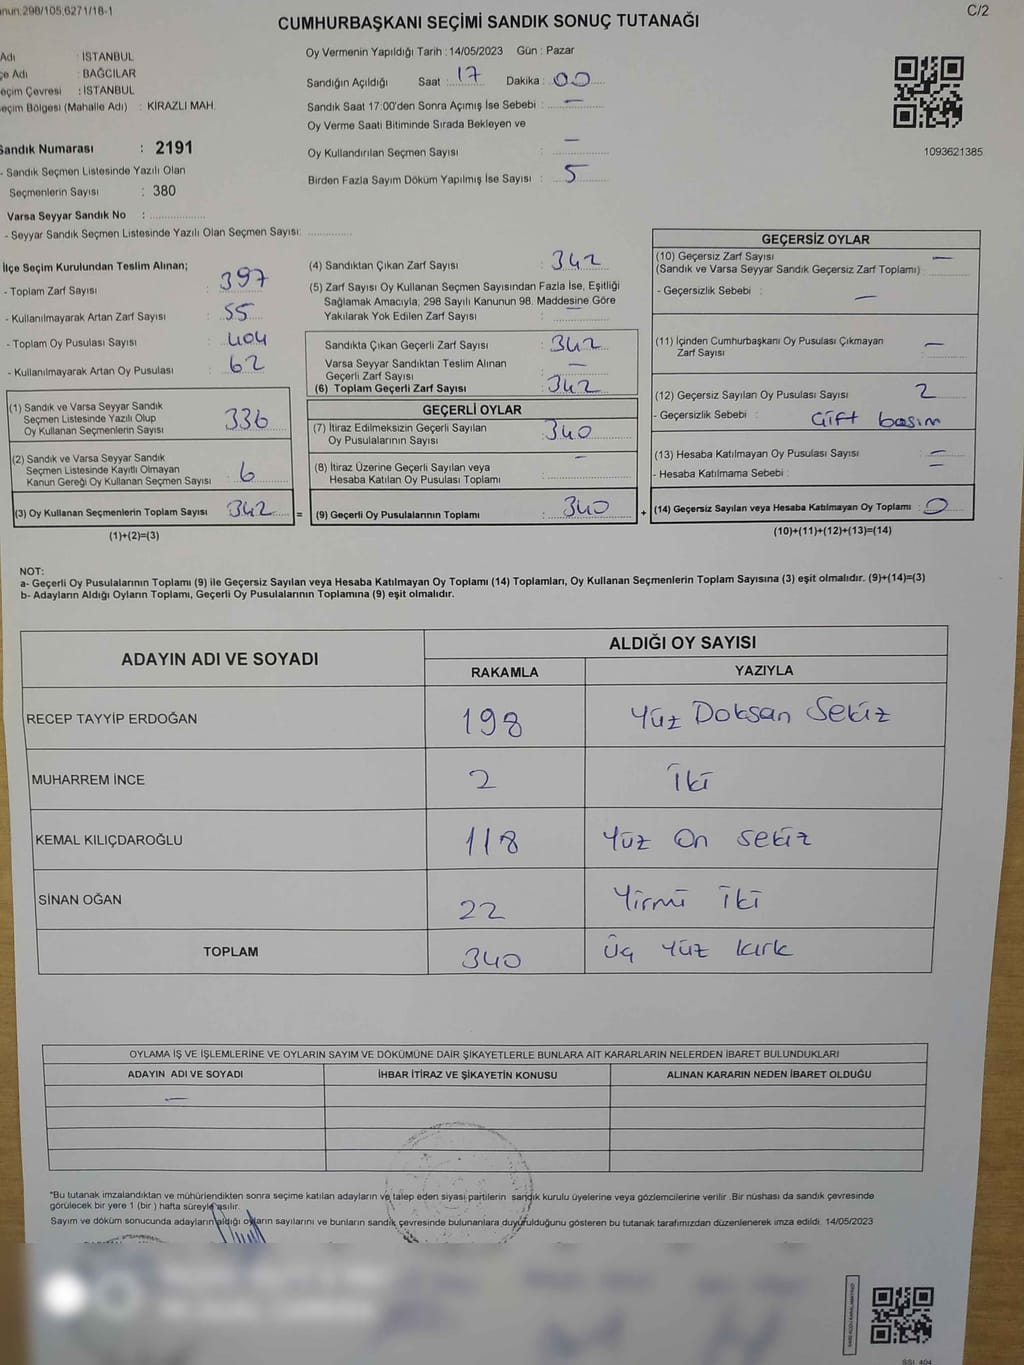 C/2
CUMHURBAŞKANI SEÇİMİ SANDIK SONUÇ TUTANAĞI
Adı : İSTANBUL
Adı : BAĞCILAR
Çevresi : İSTANBUL
Bölgesi (Mahalle Adı) : KİRAZLI MAH.
Sandık Numarası : 2191
- Sandık Seçmen Listesinde Yazılı Olan
Seçmenlerin Sayısı : 380
Varsa Seyyar Sandık No :
- Seyyar Sandık Seçmen Listesinde Yazılı Olan Seçmen Sayısı:
Oy Vermenin Yapıldığı Tarih : 14/05/2023 Gün : Pazar
Sandığın Açıldığı Saat : 17 Dakika : 00
Sandık Saat 17:00'den Sonra Açımış İse Sebebi : —
Oy Verme Saati Bitiminde Sırada Bekleyen ve
Oy Kullandırılan Seçmen Sayısı : —
Birden Fazla Sayım Döküm Yapılmış İse Sayısı : 5
1093621385
İlçe Seçim Kurulundan Teslim Alınan;
- Toplam Zarf Sayısı : 397
- Kullanılmayarak Artan Zarf Sayısı : 55
- Toplam Oy Pusulası Sayısı : 404
- Kullanılmayarak Artan Oy Pusulası : 62
(1) Sandık ve Varsa Seyyar Sandık
Seçmen Listesinde Yazılı Olup
Oy Kullanan Seçmenlerin Sayısı 336
(2) Sandık ve Varsa Seyyar Sandık
Seçmen Listesinde Kayıtlı Olmayan
Kanun Gereği Oy Kullanan Seçmen Sayısı : 6
(3) Oy Kullanan Seçmenlerin Toplam Sayısı : 342 =
(1)+(2)=(3)
(4) Sandıktan Çıkan Zarf Sayısı : 342
(5) Zarf Sayısı Oy Kullanan Seçmen Sayısından Fazla İse, Eşitliği
Sağlamak Amacıyla, 298 Sayılı Kanunun 98. Maddesine Göre
Yakılarak Yok Edilen Zarf Sayısı : —
Sandıkta Çıkan Geçerli Zarf Sayısı : 342
Varsa Seyyar Sandıktan Teslim Alınan
Geçerli Zarf Sayısı : —
(6) Toplam Geçerli Zarf Sayısı : 342
GEÇERLİ OYLAR
(7) İtiraz Edilmeksizin Geçerli Sayılan
Oy Pusulalarının Sayısı : 340
(8) İtiraz Üzerine Geçerli Sayılan veya
Hesaba Katılan Oy Pusulası Toplamı : —
(9) Geçerli Oy Pusulalarının Toplamı : 340 +
GEÇERSİZ OYLAR
(10) Geçersiz Zarf Sayısı —
(Sandık ve Varsa Seyyar Sandık Geçersiz Zarf Toplamı) :
- Geçersizlik Sebebi : —
(11) İçinden Cumhurbaşkanı Oy Pusulası Çıkmayan
Zarf Sayısı : —
(12) Geçersiz Sayılan Oy Pusulası Sayısı : 2
- Geçersizlik Sebebi : Çift basım
(13) Hesaba Katılmayan Oy Pusulası Sayısı : —
- Hesaba Katılmama Sebebi : —
(14) Geçersiz Sayılan veya Hesaba Katılmayan Oy Toplamı : 0
(10)+(11)+(12)+(13)=(14)
NOT:
a- Geçerli Oy Pusulalarının Toplamı (9) ile Geçersiz Sayılan veya Hesaba Katılmayan Oy Toplamı (14) Toplamları, Oy Kullanan Seçmenlerin Toplam Sayısına (3) eşit olmalıdır. (9)+(14)=(3)
b- Adayların Aldığı Oyların Toplamı, Geçerli Oy Pusulalarının Toplamına (9) eşit olmalıdır.
ADAYIN ADI VE SOYADI ALDIĞI OY SAYISI
RAKAMLA YAZIYLA
RECEP TAYYİP ERDOĞAN 198 Yüz Doksan Sekiz
MUHARREM İNCE 2 İki
KEMAL KILIÇDAROĞLU 118 Yüz On Sekiz
SİNAN OĞAN 22 Yirmi İki
TOPLAM 340 Üç Yüz Kırk
OYLAMA İŞ VE İŞLEMLERİNE VE OYLARIN SAYIM VE DÖKÜMÜNE DAİR ŞİKAYETLERLE BUNLARA AİT KARARLARIN NELERDEN İBARET BULUNDUKLARI
ADAYIN ADI VE SOYADI İHBAR İTİRAZ VE ŞİKAYETİN KONUSU ALINAN KARARIN NEDEN İBARET OLDUĞU
—
*Bu tutanak imzalandıktan ve mühürlendikten sonra seçime katılan adayların ve talep eden siyasi partilerin sandık kurulu üyelerine veya gözlemcilerine verilir .Bir nüshası da sandık çevresinde
görülecek bir yere 1 (bir ) hafta süreyle asılır.
Sayım ve döküm sonucunda adayların aldığı oyların sayılarını ve bunların sandık çevresinde bulunanlara duyurulduğunu gösteren bu tutanak tarafımızdan düzenlenerek imza edildi. 14/05/2023